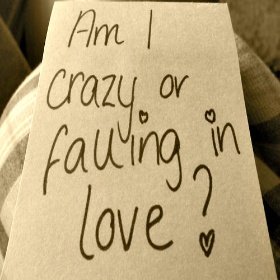 Am I
crazy or
falling in
love?